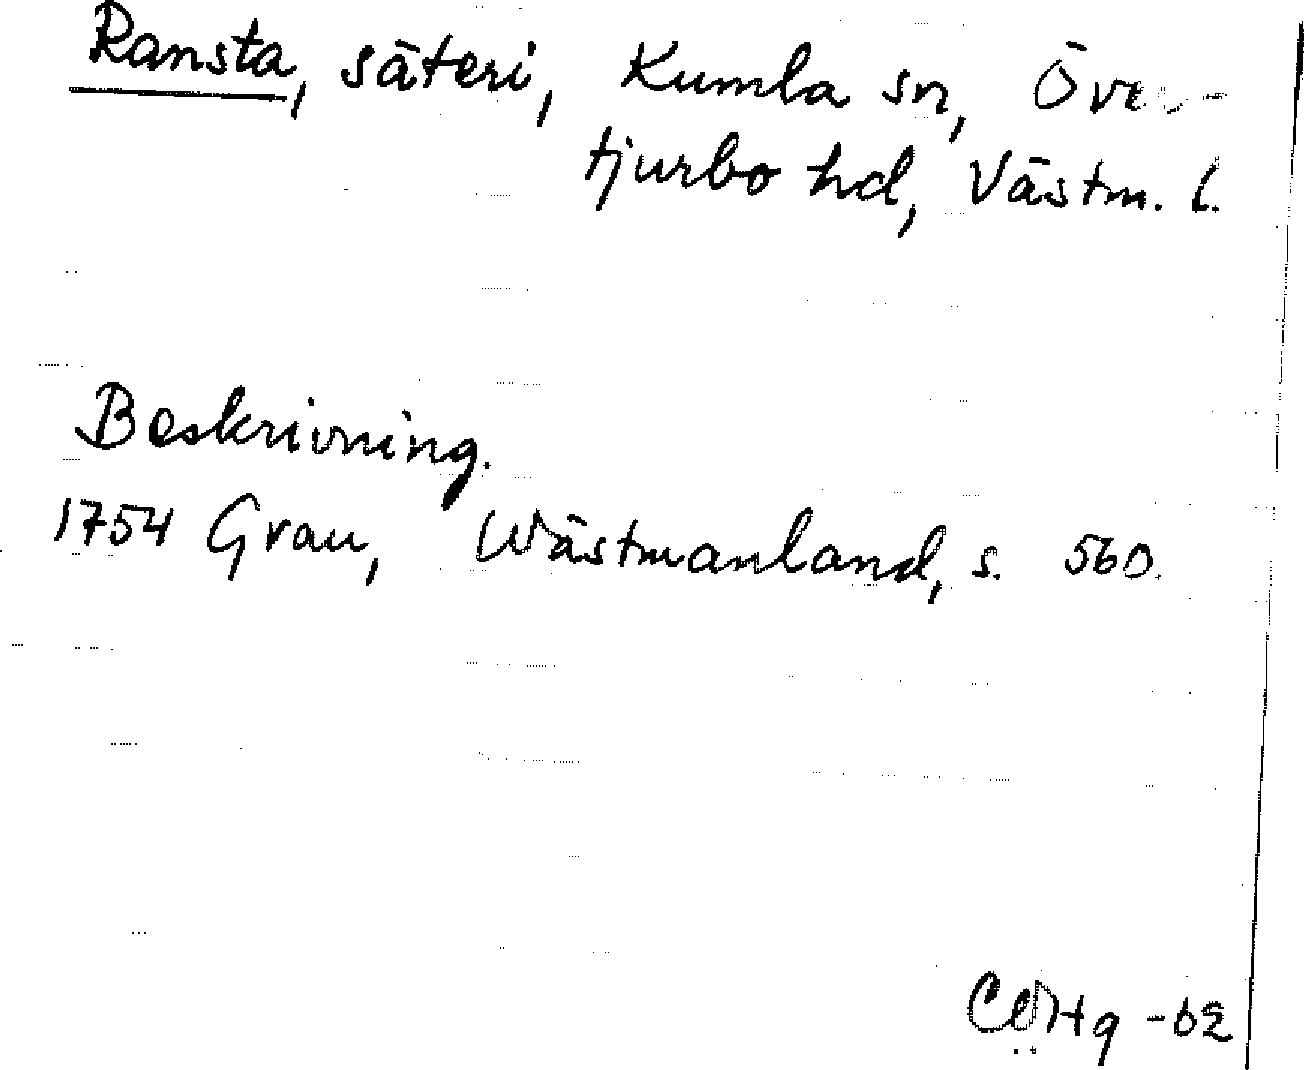 Ransta, säteri, Kumla sn, Över-
tjurbo hd, Västm. l.
Beskrivning.
1754 Grau, Wästmanland, s. 560.